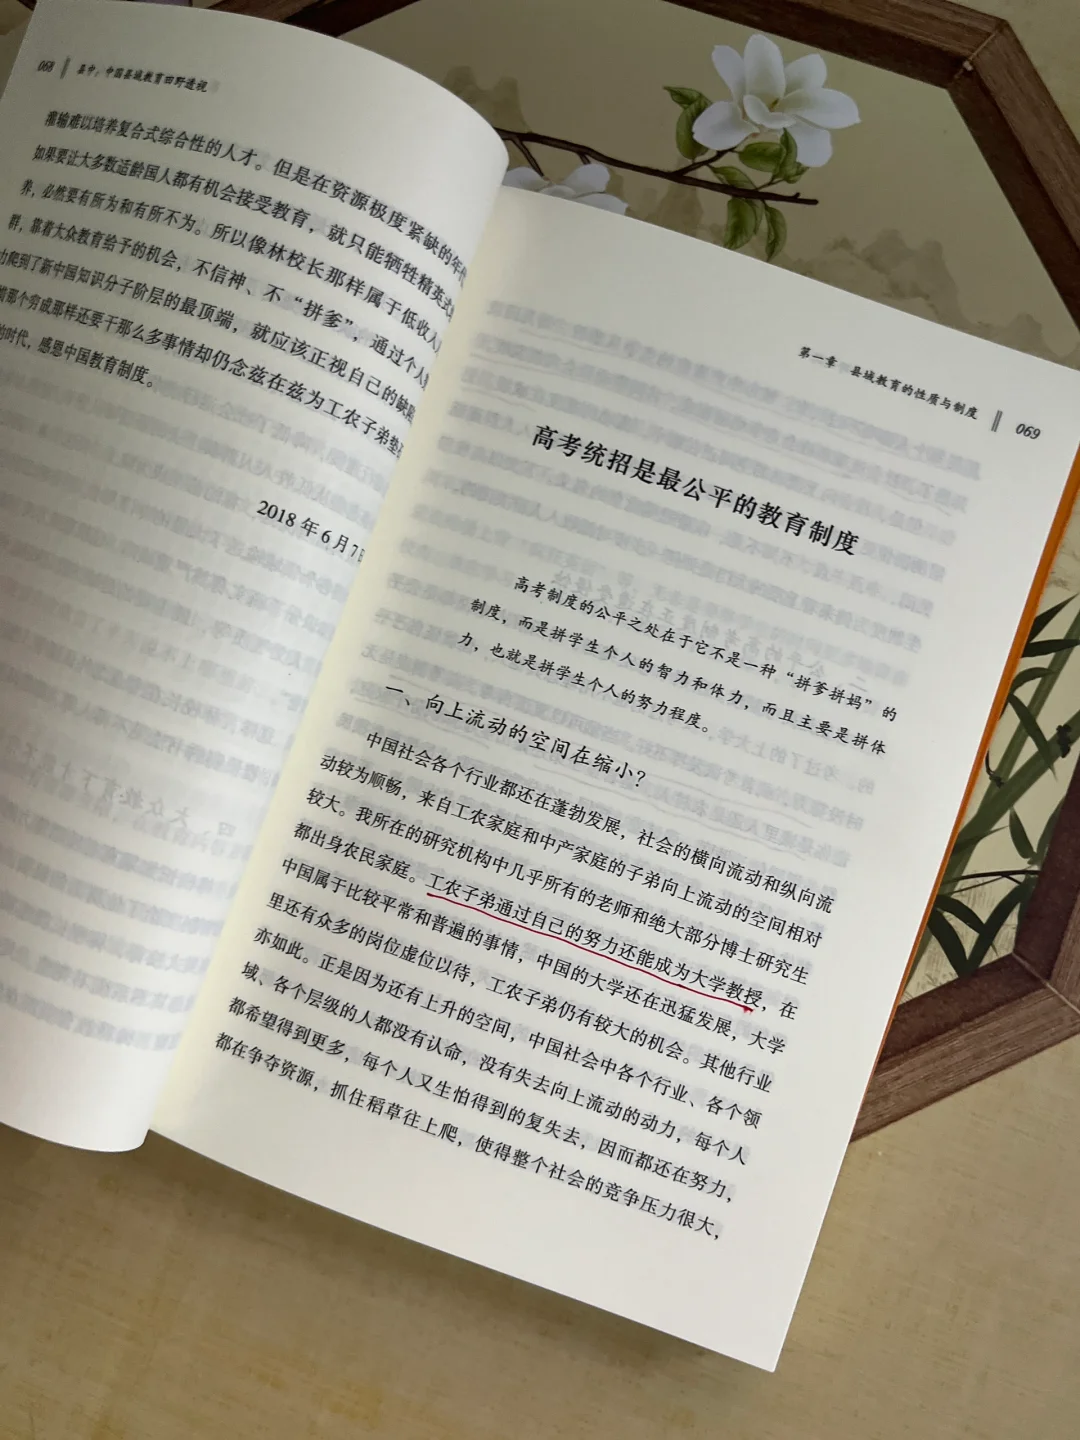 068 县中：中国县域教育田野透视
灌输难以培养复合式综合性的人才。但是在资源极度紧缺的年代
如果要让大多数适龄国人都有机会接受教育，就只能牺牲精英式
养，必然要有所为和有所不为。所以像林校长那样属于低收入
群，靠着大众教育给予的机会，不信神、不“拼爹”，通过个人
力爬到了新中国知识分子阶层的最顶端，就应该正视自己的缺陷
那个穷成那样还要干那么多事情却仍念兹在兹为工农子弟垫
的时代，感恩中国教育制度。
2018 年 6 月 7日
第一章 县域教育的性质与制度 069
高考统招是最公平的教育制度
高考制度的公平之处在于它不是一种“拼爹拼妈”的
制度，而是拼学生个人的智力和体力，而且主要是拼体
力，也就是拼学生个人的努力程度。
一、向上流动的空间在缩小？
中国社会各个行业都还在蓬勃发展，社会的横向流动和纵向流
动较为顺畅，来自工农家庭和中产家庭的子弟向上流动的空间相对
较大。我所在的研究机构中几乎所有的老师和绝大部分博士研究生
都出身农民家庭。工农子弟通过自己的努力还能成为大学教授，在
中国属于比较平常和普遍的事情，中国的大学还在迅猛发展，大学
里还有众多的岗位虚位以待，工农子弟仍有较大的机会。其他行业
亦如此。正是因为还有上升的空间，中国社会中各个行业、各个领
域、各个层级的人都没有认命，没有失去向上流动的动力，每个人
都希望得到更多，每个人又生怕得到的复失去，因而都还在努力，
都在争夺资源，抓住稻草往上爬，使得整个社会的竞争压力很大，